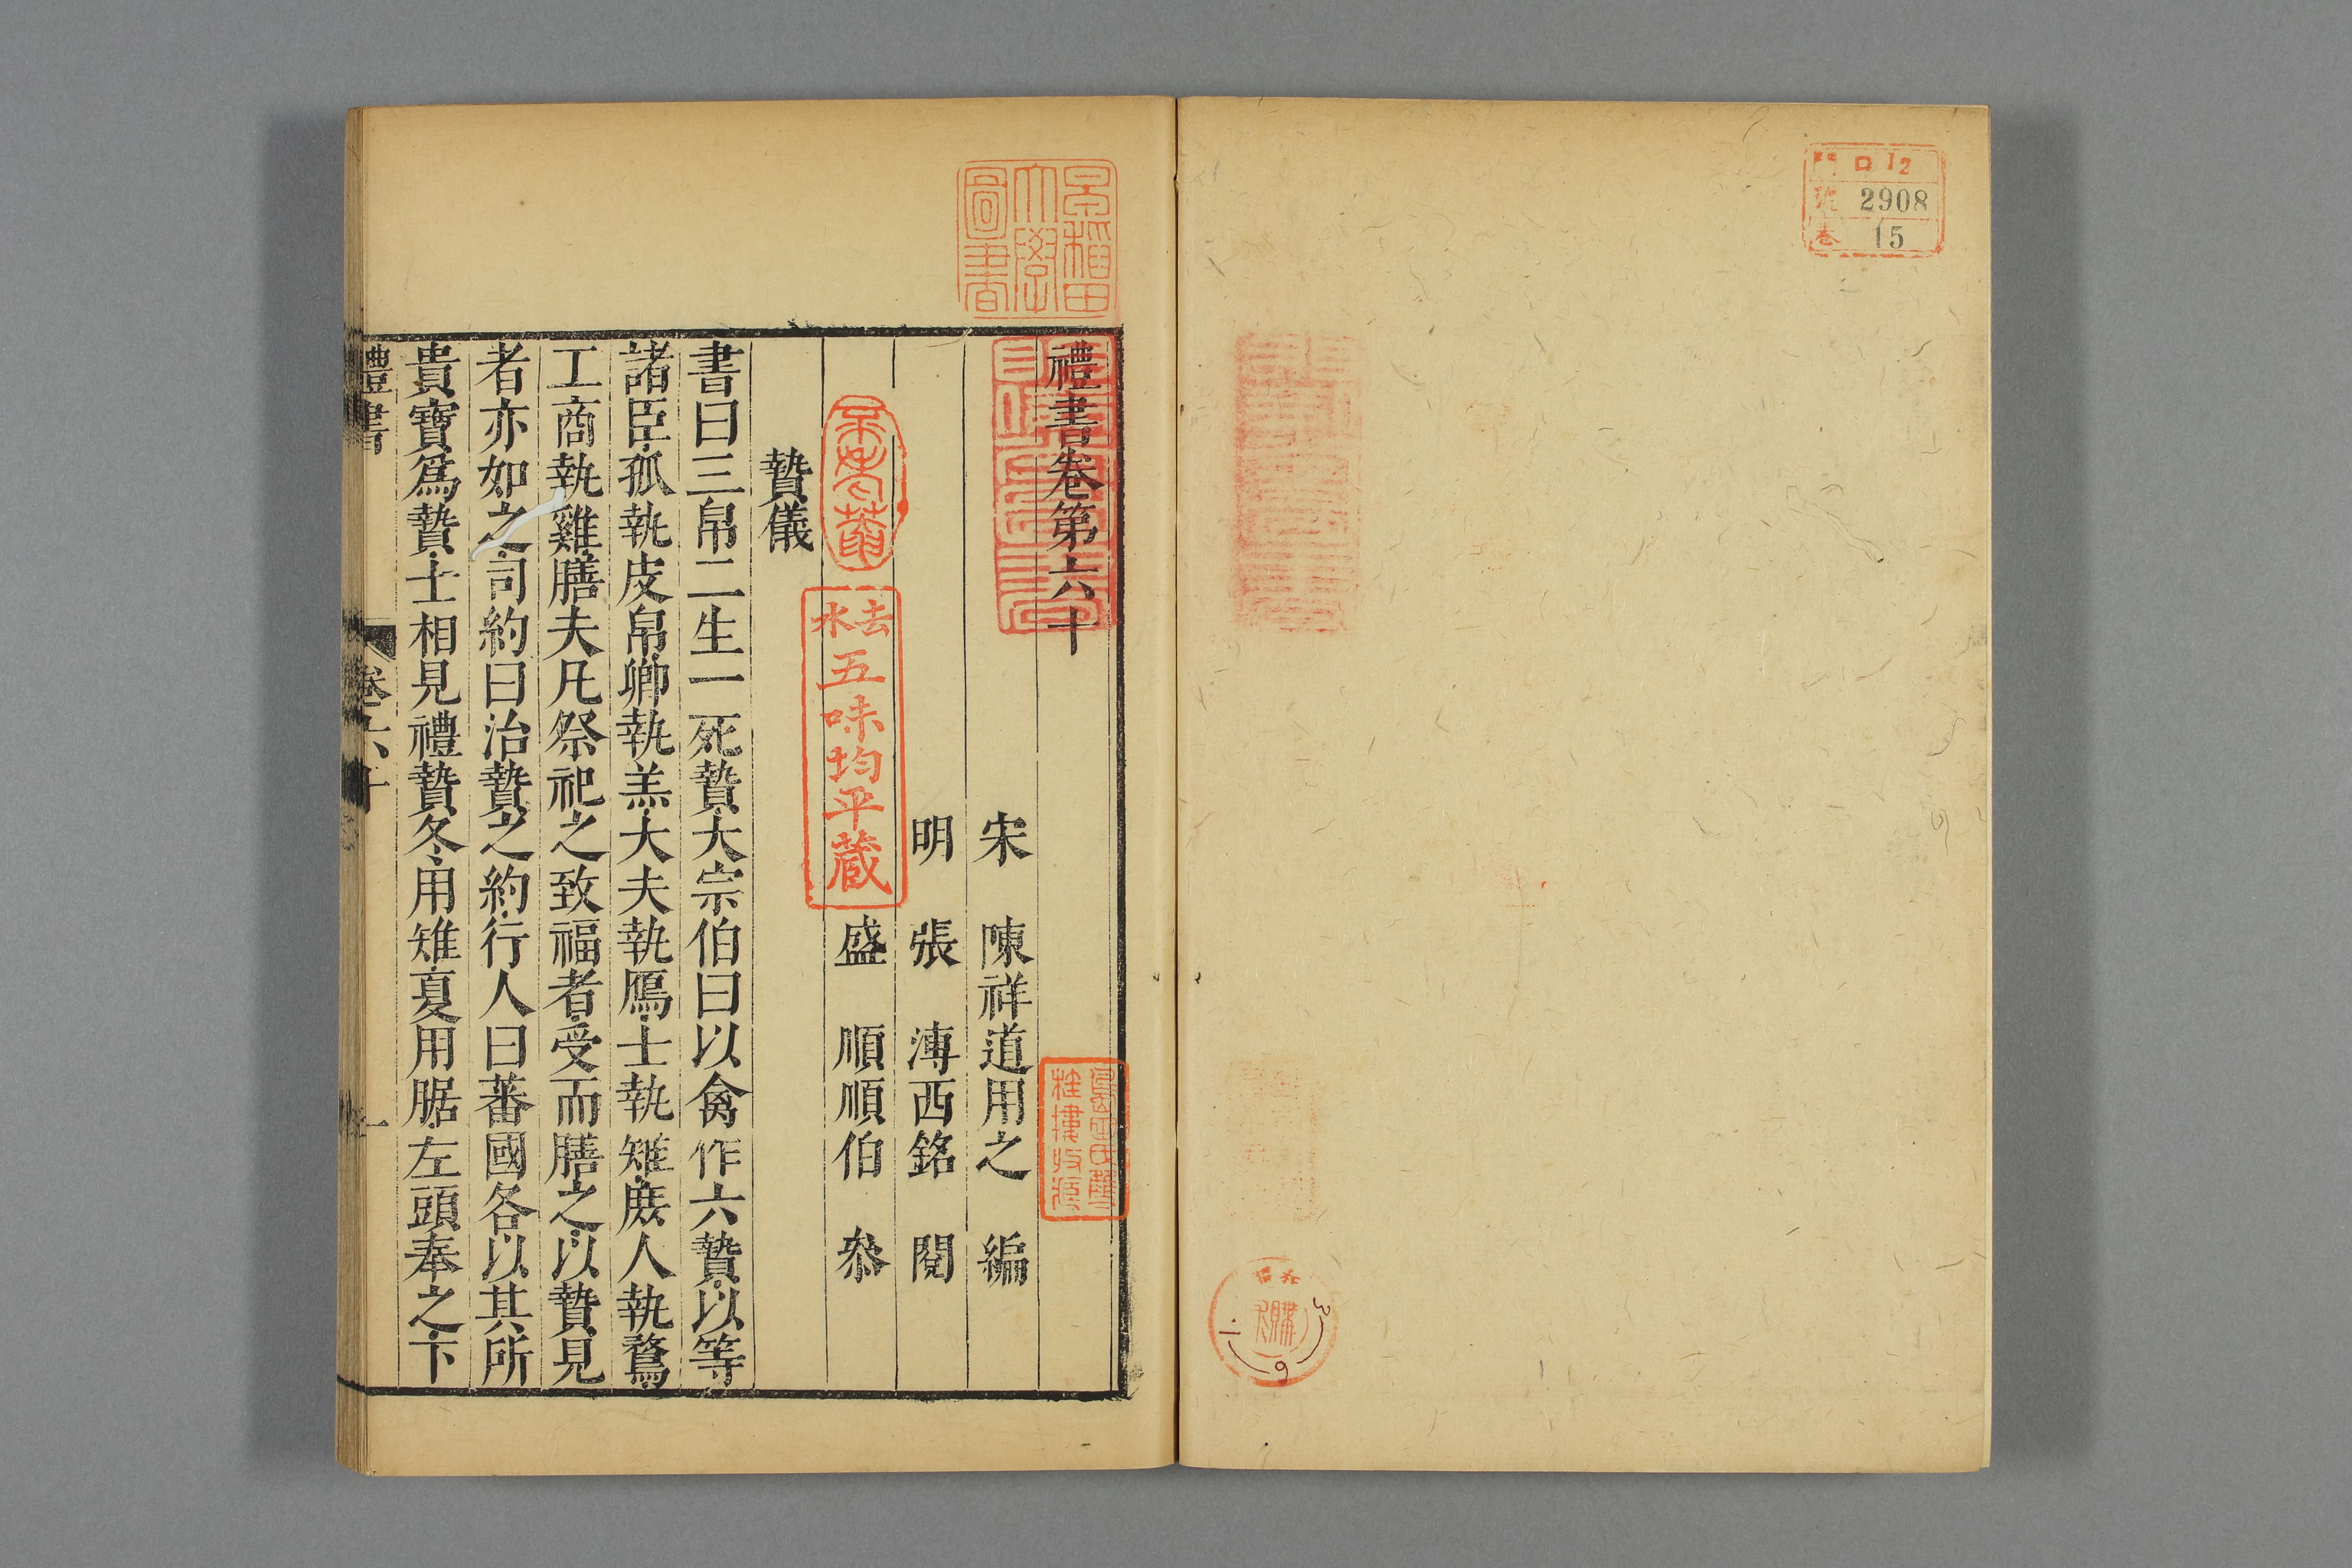 門 ロ 12
號 2908
卷 15
早稻田
大學
圖書
禮書卷第六十
宋 陳祥道用之 編
明 張 溥西銘 閱
盛 順順伯 叅
去水
五味均平蔵
贄儀
書曰三帛二生一死贄大宗伯曰以禽作六贄以等
諸臣孤執皮帛卿執羔大夫執鴈士執雉庶人執鶩
工商執雞膳夫凡祭祀之致福者受而膳之以贄見
者亦如之司約曰治贄之約行人曰蕃國各以其所
貴寶爲贄士相見禮贄冬用雉夏用腒左頭奉之下
禮書 卷六十 一